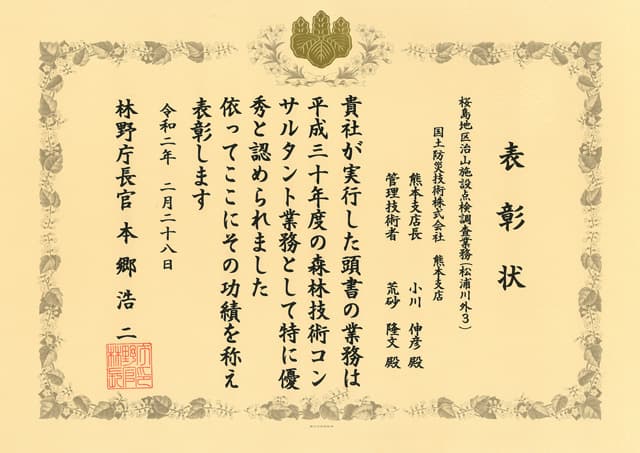 表彰状
桜島地区治山施設点検調査業務(松浦川外3)
国土防災技術株式会社 熊本支店
熊本支店長 小川 伸彦 殿
管理技術者 荒砂 隆文 殿
貴社が実行した頭書の業務は
平成三十年度の森林技術コン
サルタント業務として特に優
秀と認められました
依ってここにその功績を称え
表彰します
令和二年 二月二十八日
林野庁長官 本郷浩二